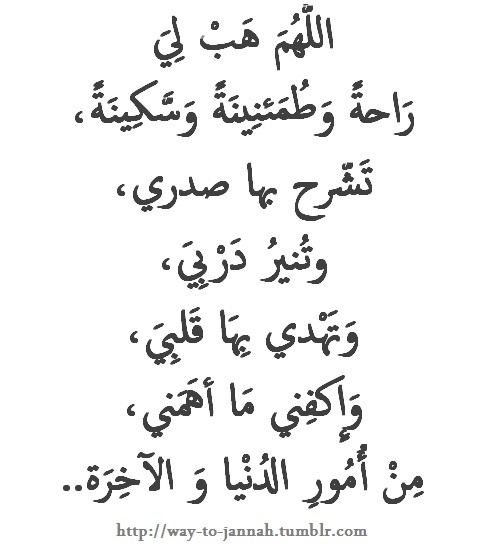 اللَّهُمَ هَبْ لِيَ
رَاحةً وَطُمَئنِينَةً وَسَّكِينَةً،
تَشّرح بها صدري،
وتُنيرُ دَرْبِيَ،
وَتَهْدي بِهَا قَلبِيَ،
وَإكفِني مَا أهَمَني،
مِنْ أُمُورِ الدُنْيا وَ الآخِرَة..
http://way-to-jannah.tumblr.com